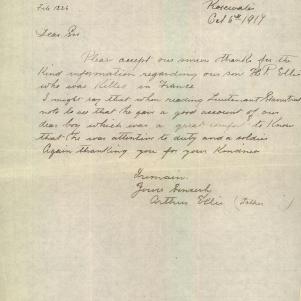 Oct 6th 1917
Dear Sir
Please accept our sincere thanks for the
Kind information regarding our son H P Ellis
who was Killed in France
I might say that when reading Lieutenant
note to see that he gave a good account of our
dear boy which was a great comfort to Know
that he was attentive to duty and a soldier
Again thanking you for your Kindness
I remain
Yours Sincerely
Arthur Ellis (Father)